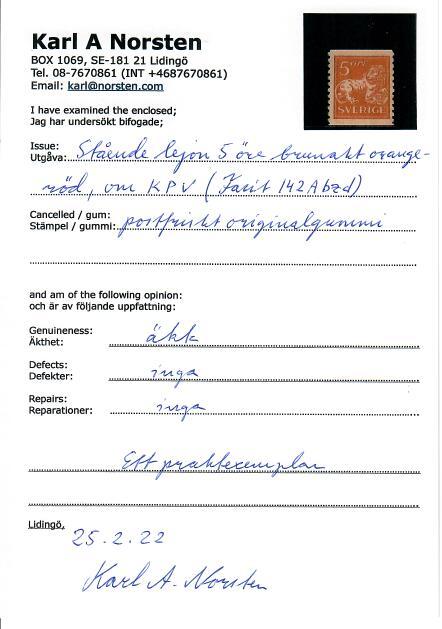 Karl A Norsten
BOX 1069, SE-181 21 Lidingö
Tel. 08-7670861 (INT +4687670861)
Email: karl@norsten.com
5 ÖRE
SVERIGE
I have examined the enclosed;
Jag har undersökt bifogade;
Issue:
Utgåva: Stående lejon 5 öre brunakt orange-
röd, om KPV (Facit 142Abzd)
Cancelled / gum:
Stämpel / gummi: postfriskt originalgummi
and am of the following opinion:
och är av följande uppfattning:
Genuineness:
Äkthet: äkk
Defects:
Defekter: inga
Repairs:
Reparationer: inga
Ett praktexemplar
Lidingö,
25.2.22
Karl A. Norsten